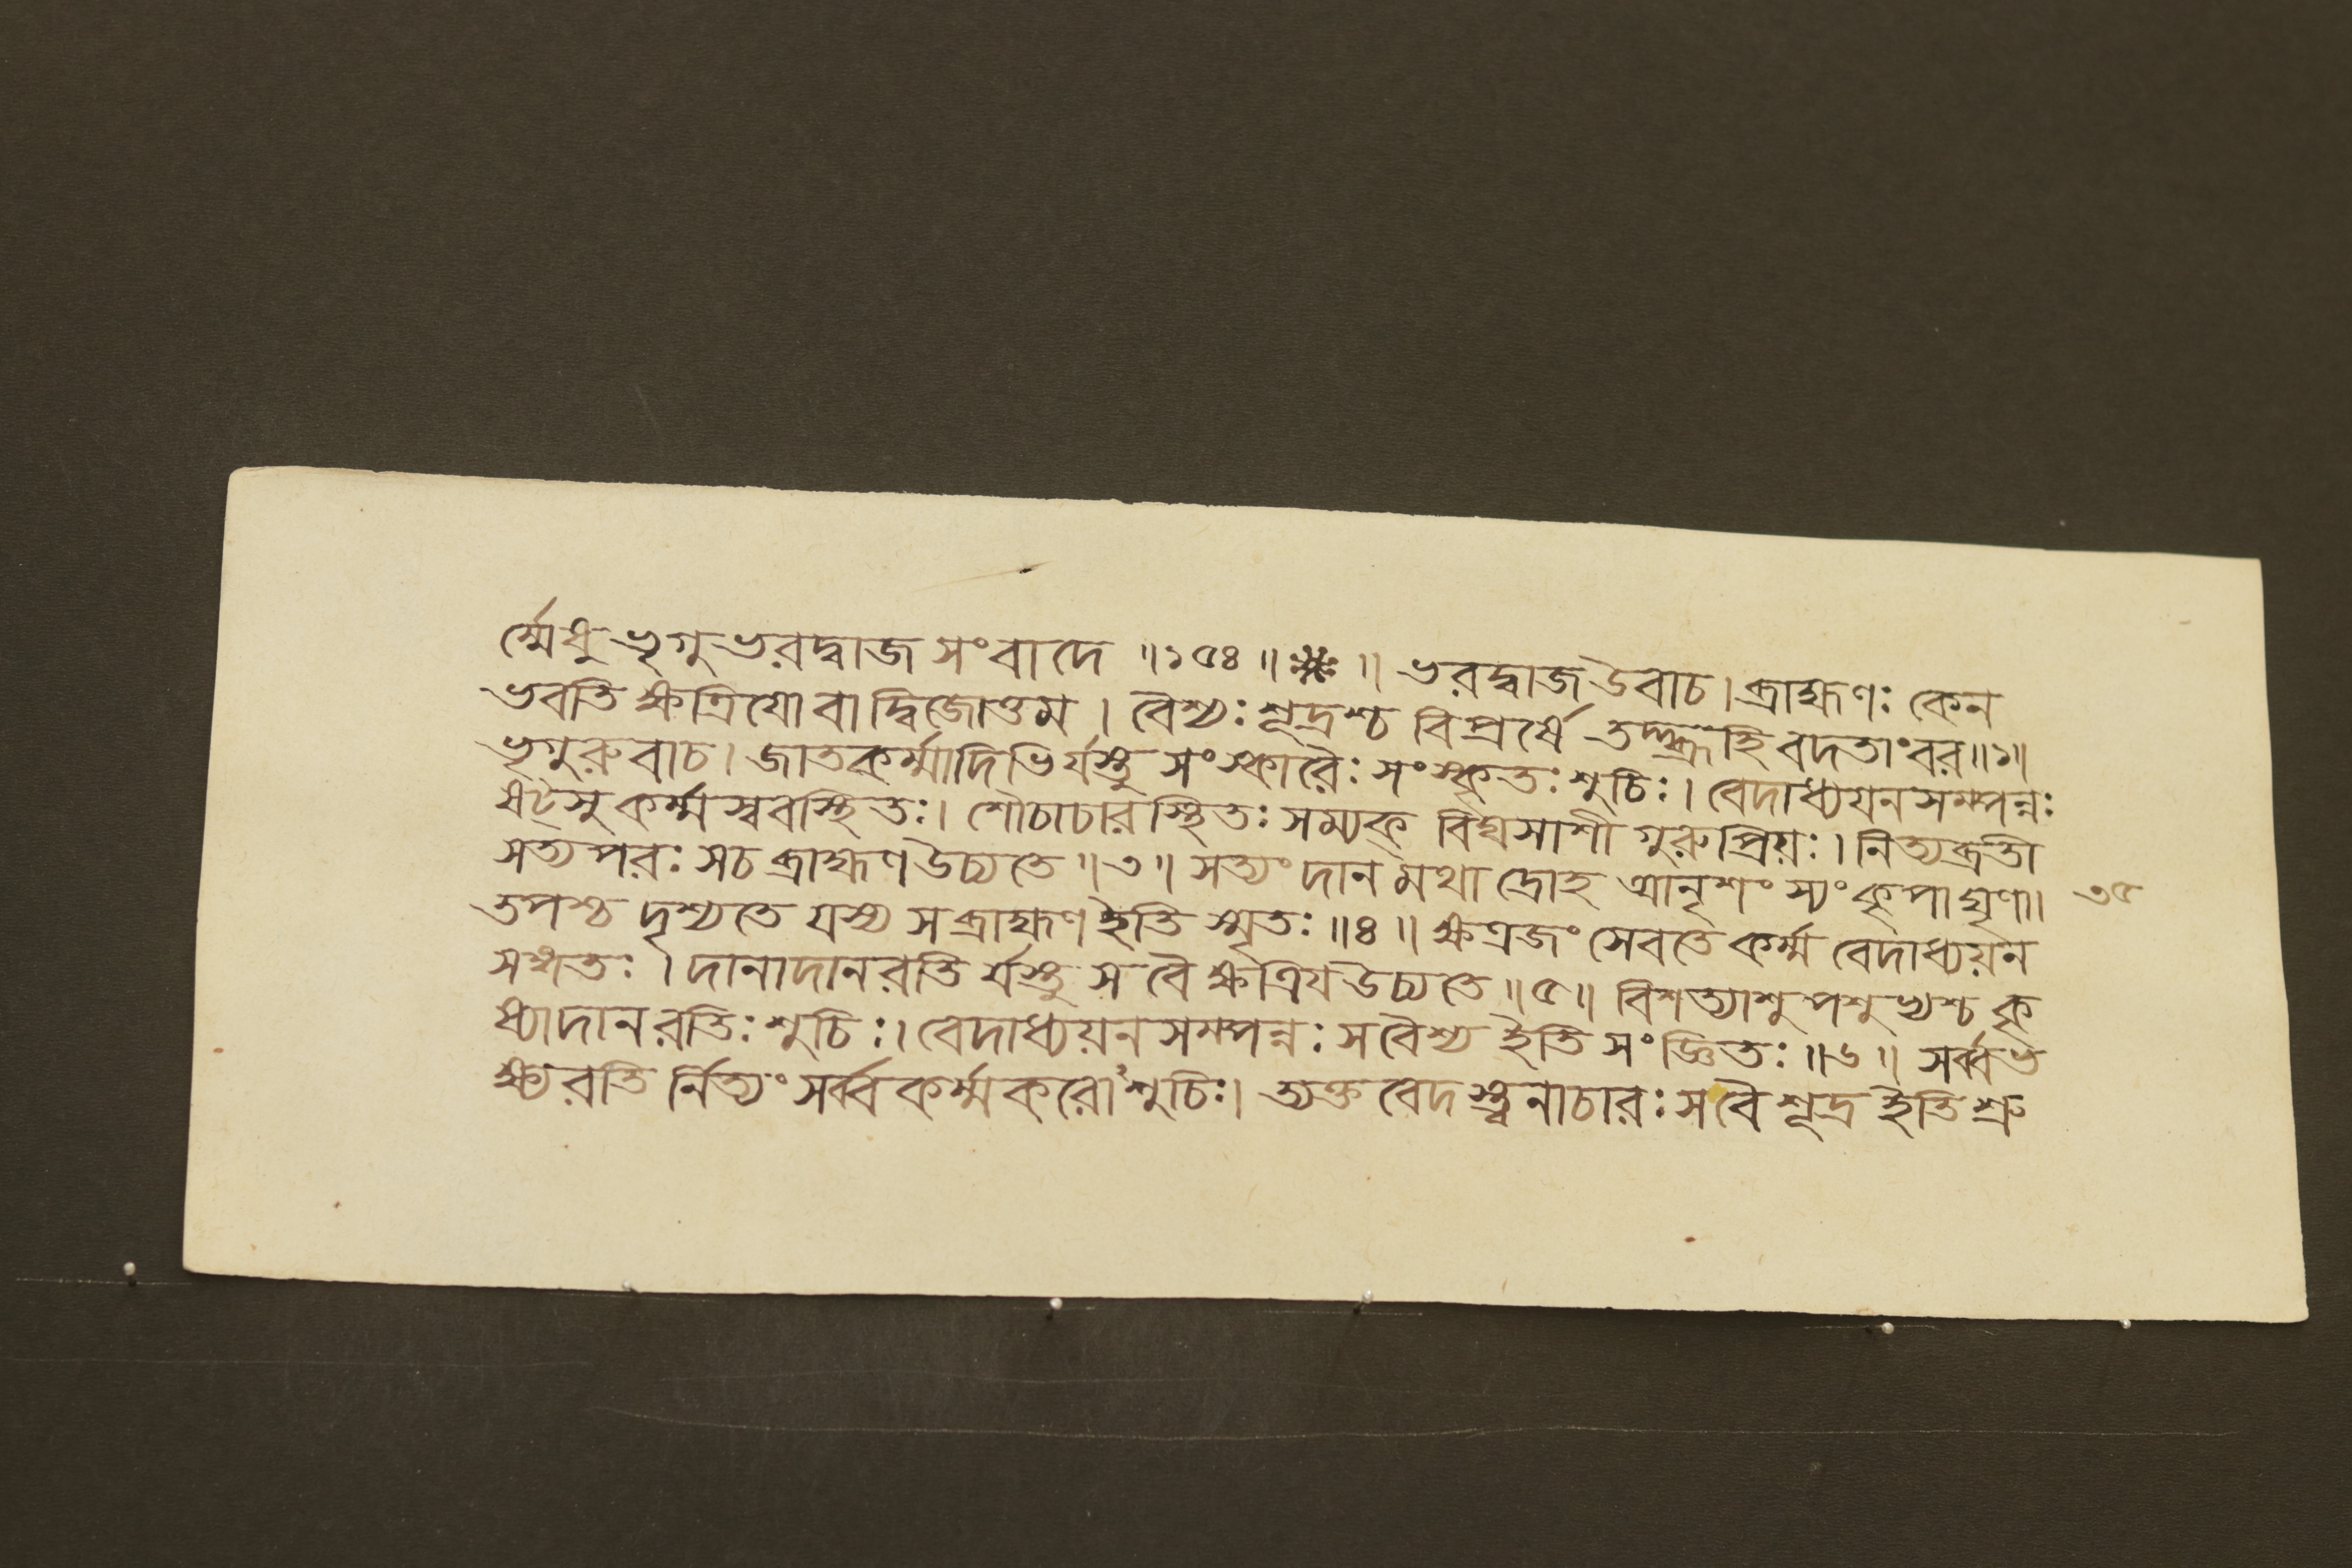 র্ম্মেষু ভৃগুভরদ্বাজসংবাদে ॥১৫৪॥※॥ ভরদ্বাজ উবাচ। ব্রাহ্মণঃ কেন
ভবতি ক্ষত্রিযো বা দ্বিজোত্তম । বৈশ্যঃ শূদ্রশ্চ বিপ্রর্ষে তদ্ব্রূহি বদতাংবর॥১॥
ভৃগুরুবাচ। জাতকর্ম্মাদিভির্যস্তু সংস্কারৈঃ সংস্কৃতঃ শুচিঃ। বেদাধ্যয়নসম্পন্নঃ
ষট্সু কর্ম্মস্ববস্থিতঃ। শৌচাচারস্থিতঃ সম্যক্ বিঘসাশী গুরুপ্রিয়ঃ। নিত্যব্রতী
সত্যপরঃ সচ ব্রাহ্মণ উচ্যতে ॥৩॥ সত্যং দানমথাদ্রোহ আনৃশংস্যং কৃপা ঘৃণা।
৩৫
তপশ্চ দৃশ্যতে যস্য স ব্রাহ্মণ ইতি স্মৃতঃ ॥৪॥ ক্ষত্রজং সেবতে কর্ম্ম বেদাধ্যয়ন
সঙ্গতঃ । দানাদানরতির্যস্তু স বৈ ক্ষত্রিয উচ্যতে ॥৫॥ বিশত্যাশু পশুভ্যশ্চ কৃ
ষ্যাদানরতিঃ শুচিঃ। বেদাধ্যয়নসম্পন্নঃ স বৈশ্য ইতি সংজ্ঞিতঃ ॥৬॥ সর্ব্বভ
ক্ষ্যরতির্নিত্যং সর্ব্বকর্ম্মকরোঽশুচিঃ। ত্যক্তবেদস্ত্বনাচারঃ স বৈ শূদ্র ইতি শ্রু